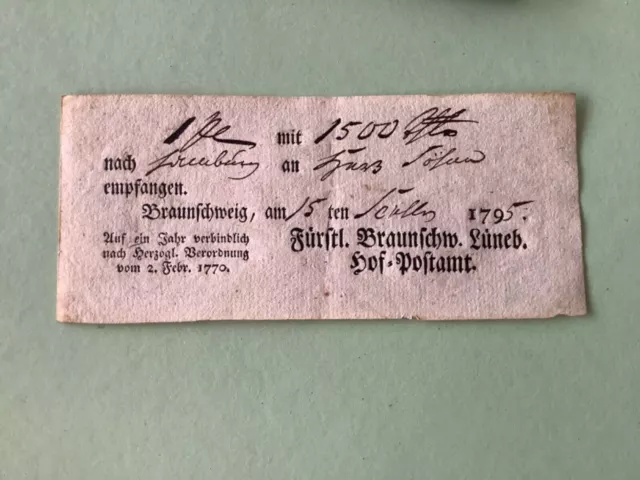 1 mit 1500
nach an Herz
empfangen.
Braunschweig, am 15 ten 1795.
Auf ein Jahr verbindlich
nach Herzogl. Verordnung
vom 2. Febr. 1770.
Fürstl. Braunschw. Lüneb.
Hof-Postamt.